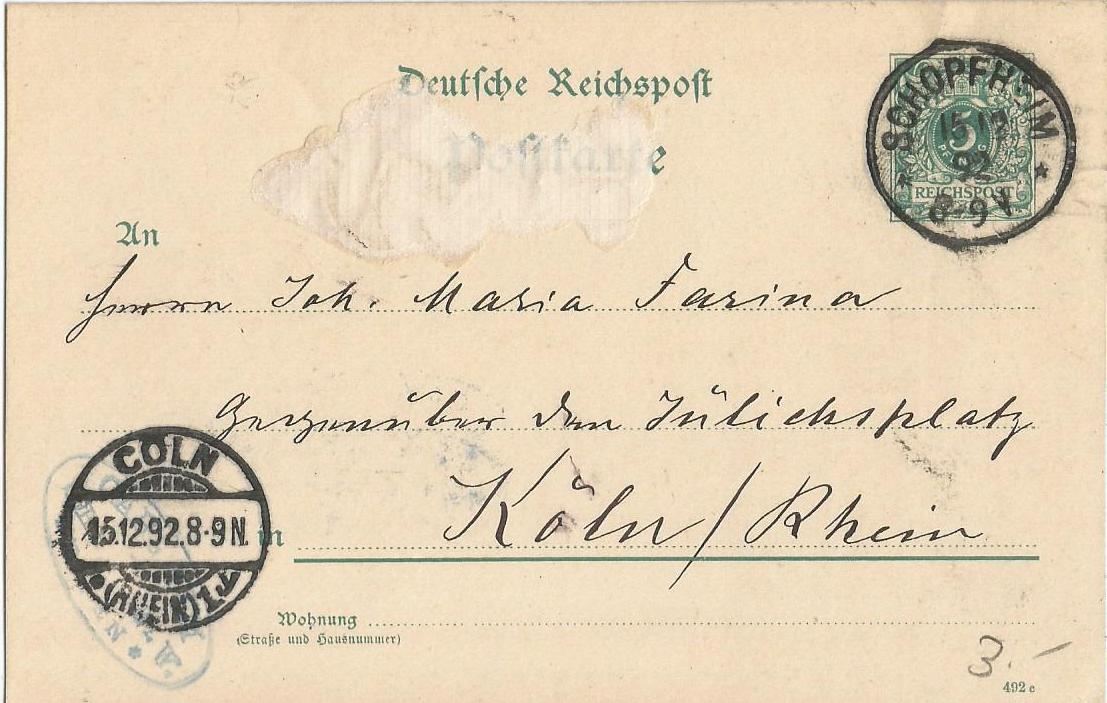 Deutsche Reichspost
Postkarte
SCHOPFHEIM
15 12
92
8-9 V.
5
PFENNIG
REICHSPOST
An
Herrn Joh. Maria Farina
Gegenüber dem Jülichsplatz
in Köln / Rhein
CÖLN
15.12.92.8-9N.
(RHEIN) 1
Wohnung
(Straße und Hausnummer)
3.-
492 e